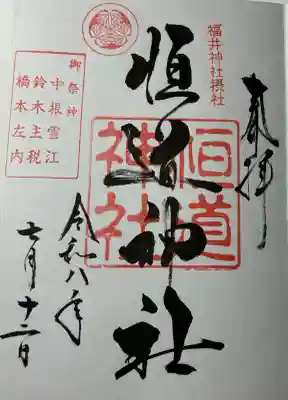 奉拝
福井神社摂社
恒道神社
恒道
神社
御祭神
中根雪江
鈴木主税
橋本左内
令和八年
七月十二日